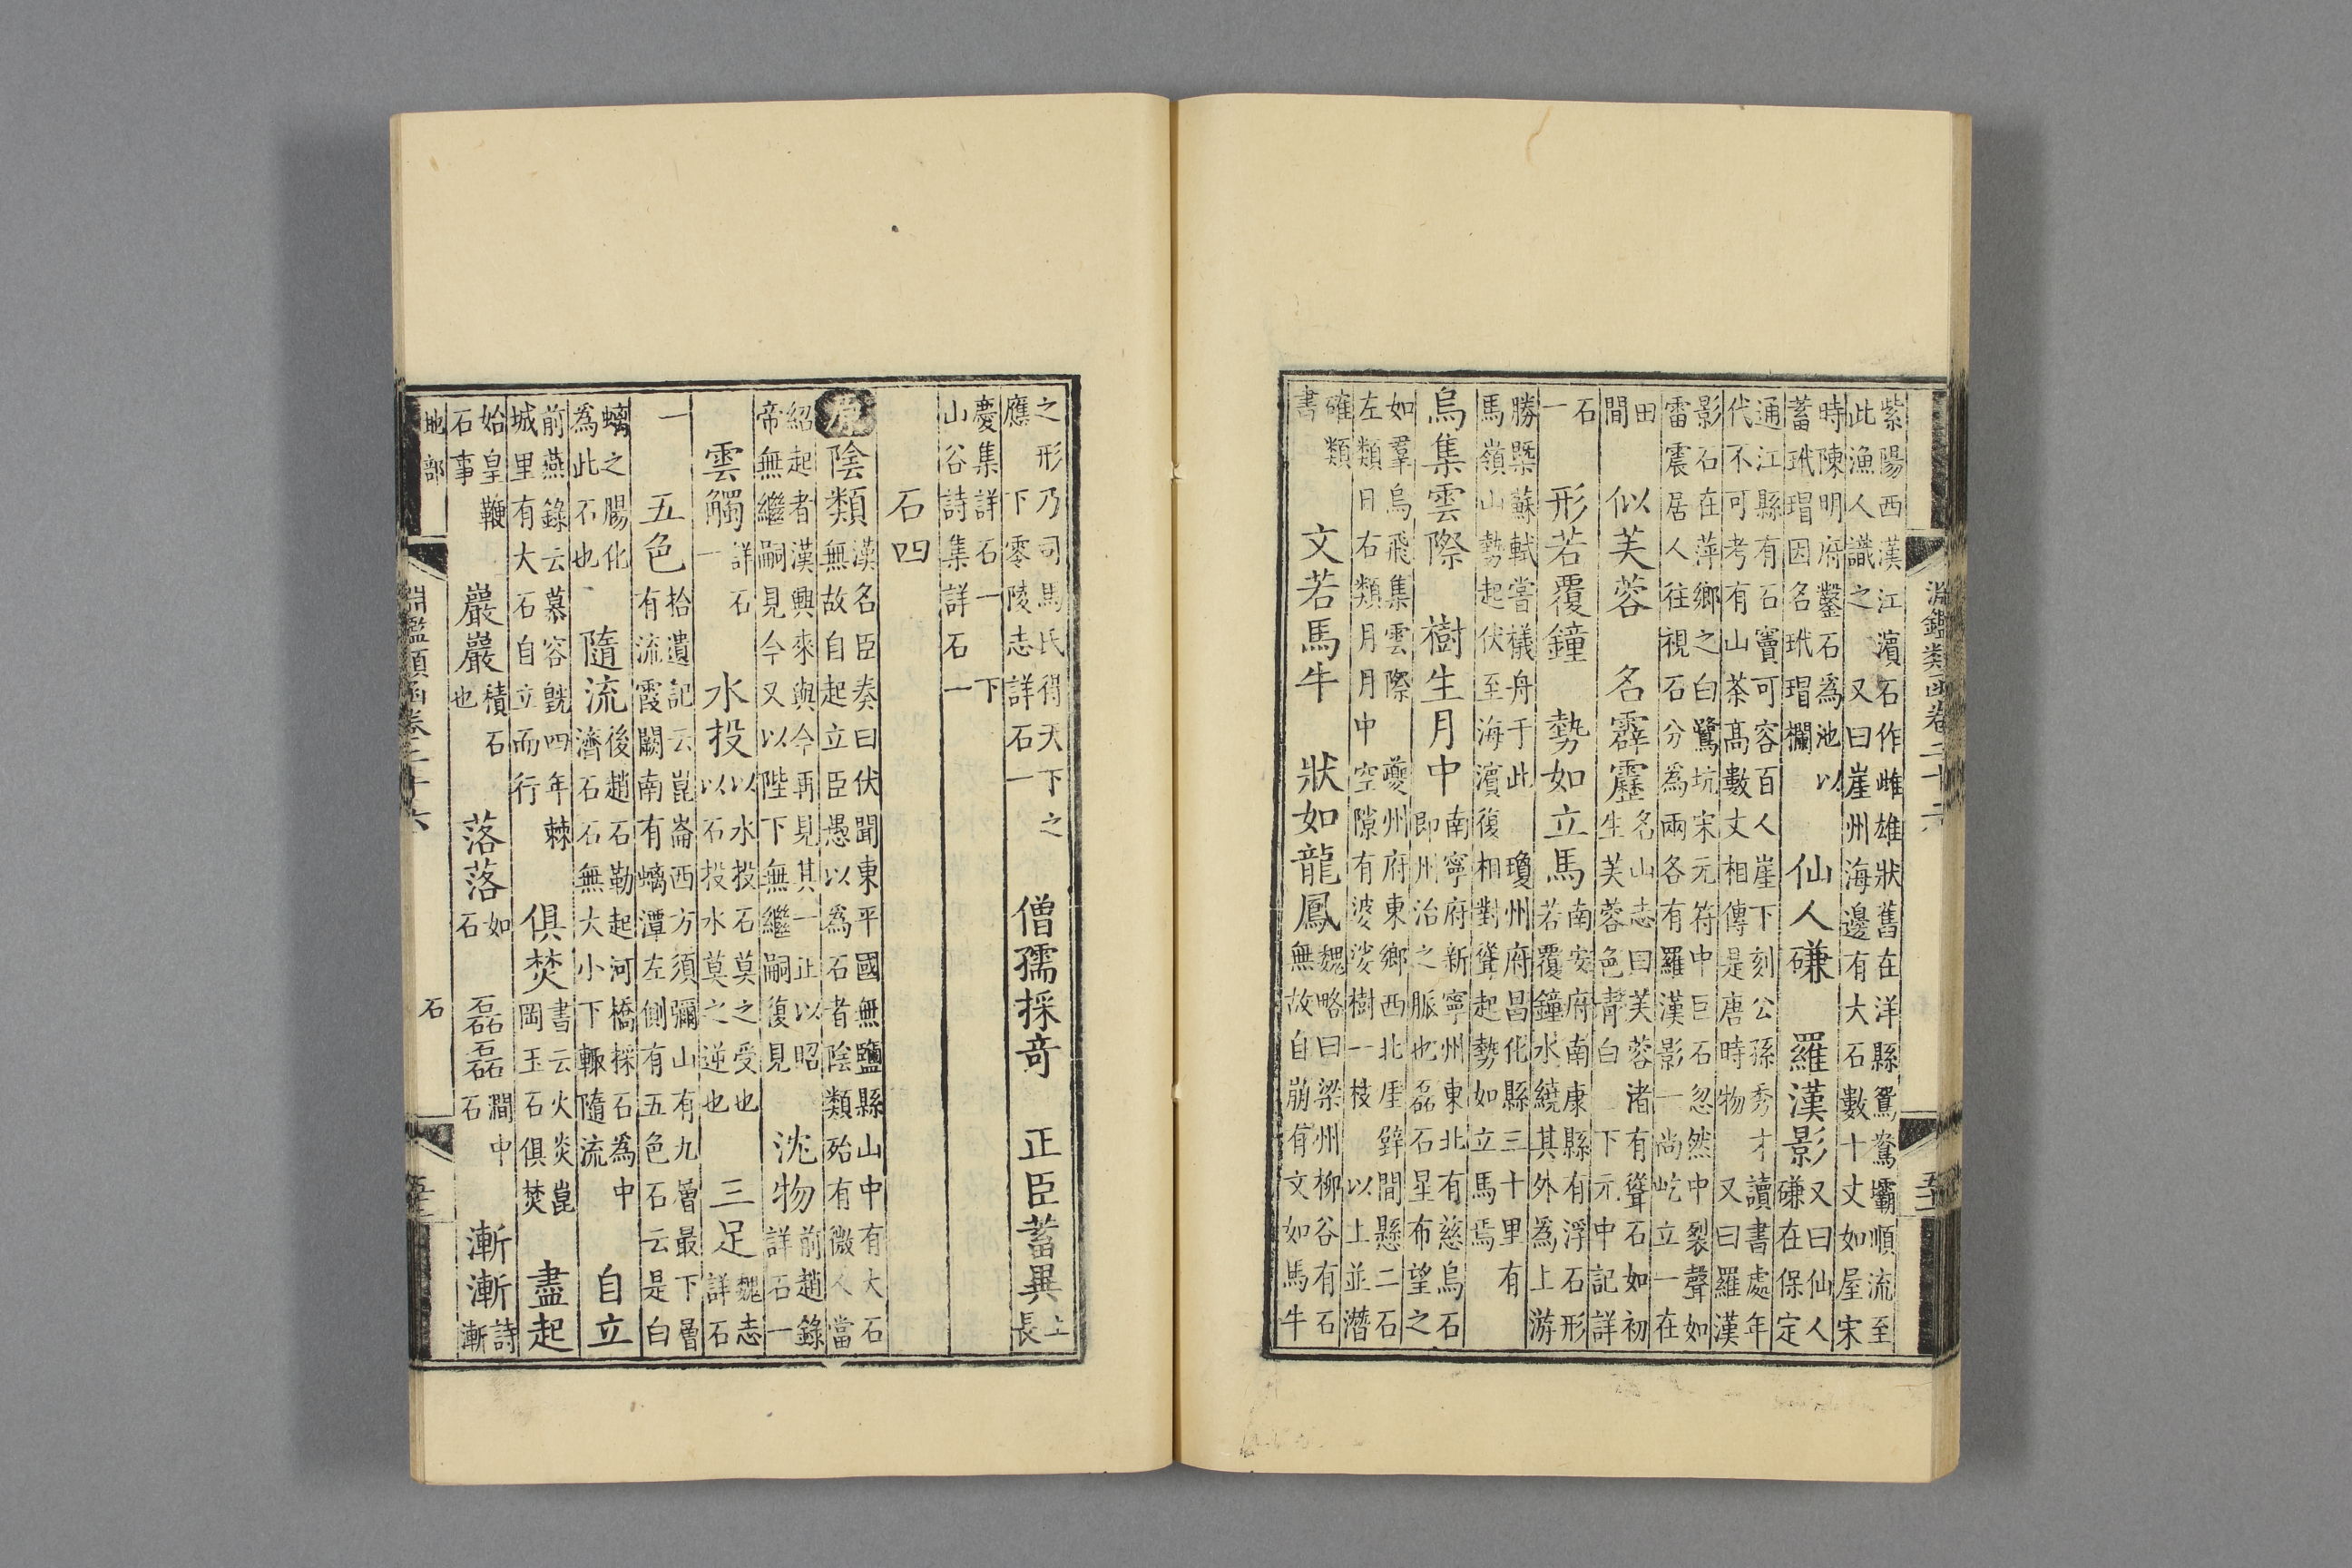 淵鑑類函卷二十六
紫陽西漢江濱石作雌雄狀舊在洋縣鴛鴦壩順流至
此漁人識之 又曰崖州海邊有大石數十丈如屋宋
時陳明府鑿石為池以
蓄玳瑁因名玳瑁欄
仙人磏 羅漢影
又曰仙人
磏在保定
通江縣有石竇可容百人崖下刻公孫秀才讀書處年
代不可考有山茶高數丈相傳是唐時物 又曰羅漢
影石在萍鄉之白鷺坑宋元符中巨石忽然中裂聲如
雷震居人往視石分為兩各有羅漢影一尚屹立一在
田
間
似芙蓉 名霹靂
名山志曰芙蓉渚有聳石如初
生芙蓉色青白 下元中記詳
石
一
形若覆鐘 勢如立馬
南安府南康縣有浮石形
若覆鐘水繞其外為上游
勝槩蘇軾嘗檥舟于此 瓊州府昌化縣三十里有
馬嶺山勢起伏至海濱復相對聳起勢如立馬焉
烏集雲際 樹生月中
南寧府新寧州東北有慈烏石
即州治之脈也磊石星布望之
如羣烏飛集雲際 夔州府東鄉西北厓壁間懸二石
左類日右類月月中空隙有婆娑樹一枝以上並潛
確類
書
文若馬牛 狀如龍鳳
魏略曰梁州柳谷有石
無故自崩有文如馬牛
之形乃司馬氏得天下之
應 下零陵志詳石一
僧孺採竒 正臣蓄異
上
長
慶集詳石一 下
山谷詩集詳石一
石四
原陰類
漢名臣奏曰伏聞東平國無鹽縣山中有大石
無故自起立臣愚以為石者陰類殆有微人當
紹起者漢興來與今再見其一止以昭
帝無繼嗣見今又以陛下無繼嗣復見
沈物
前趙錄
詳石一
雲觸
詳石
一
水投
以水投石莫之受也
以石投水莫之逆也
三足
魏志
詳石
一
五色
拾遺記云崑崙西方須彌山有九層最下層
有流霞闕南有螭潭左側有五色石云是白
螭之腸化
為此石也
隨流
後趙石勒起河橋採石為中
濟石石無大小下輒隨流
自立
前燕錄云慕容皝四年棘
城里有大石自立而行
俱焚
書云火炎崑
岡玉石俱焚
盡起
始皇鞭
石事
巖巖
積石
也
落落
如
石
磊磊
澗中
石
漸漸
詩
漸
地部 石
淵鑑類函卷二十六